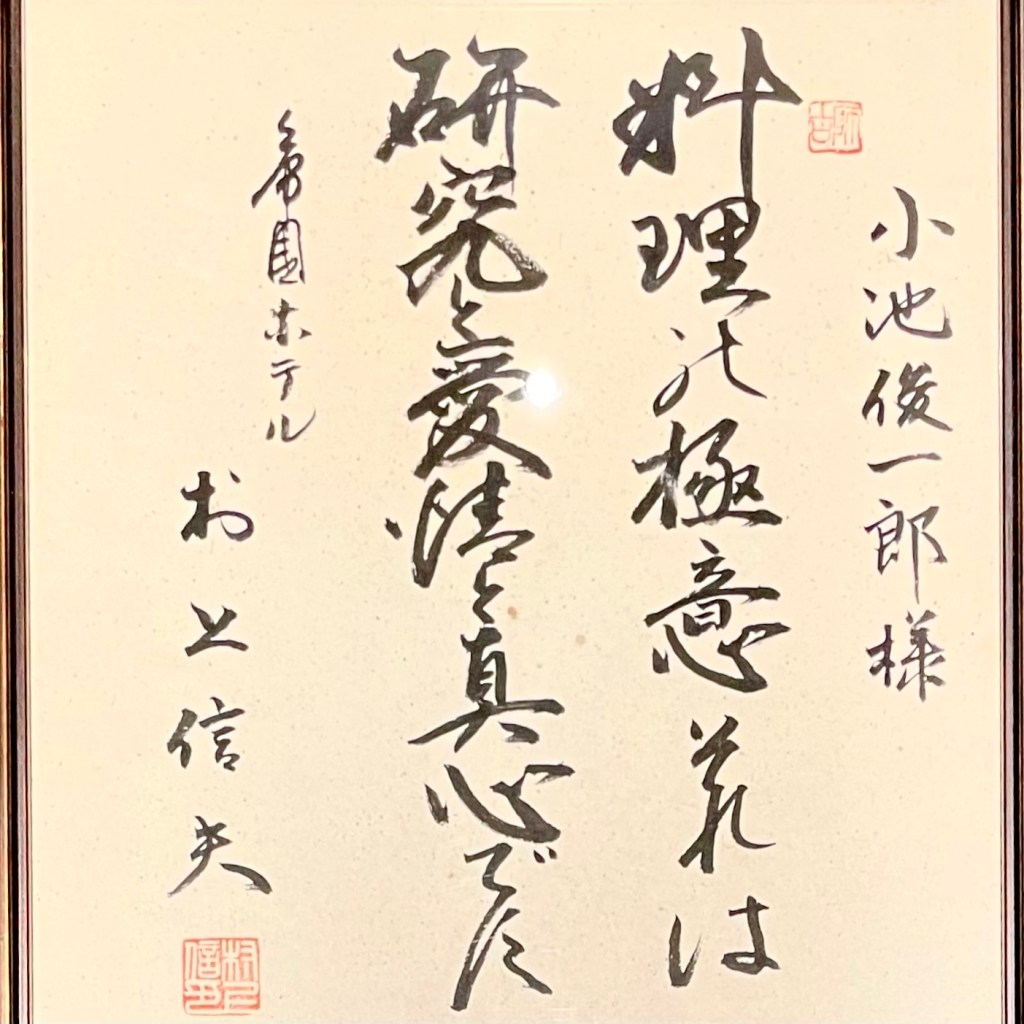 小池俊一郎様
料理の極意それは
研究と愛情と真心です
帝國ホテル
村上信夫